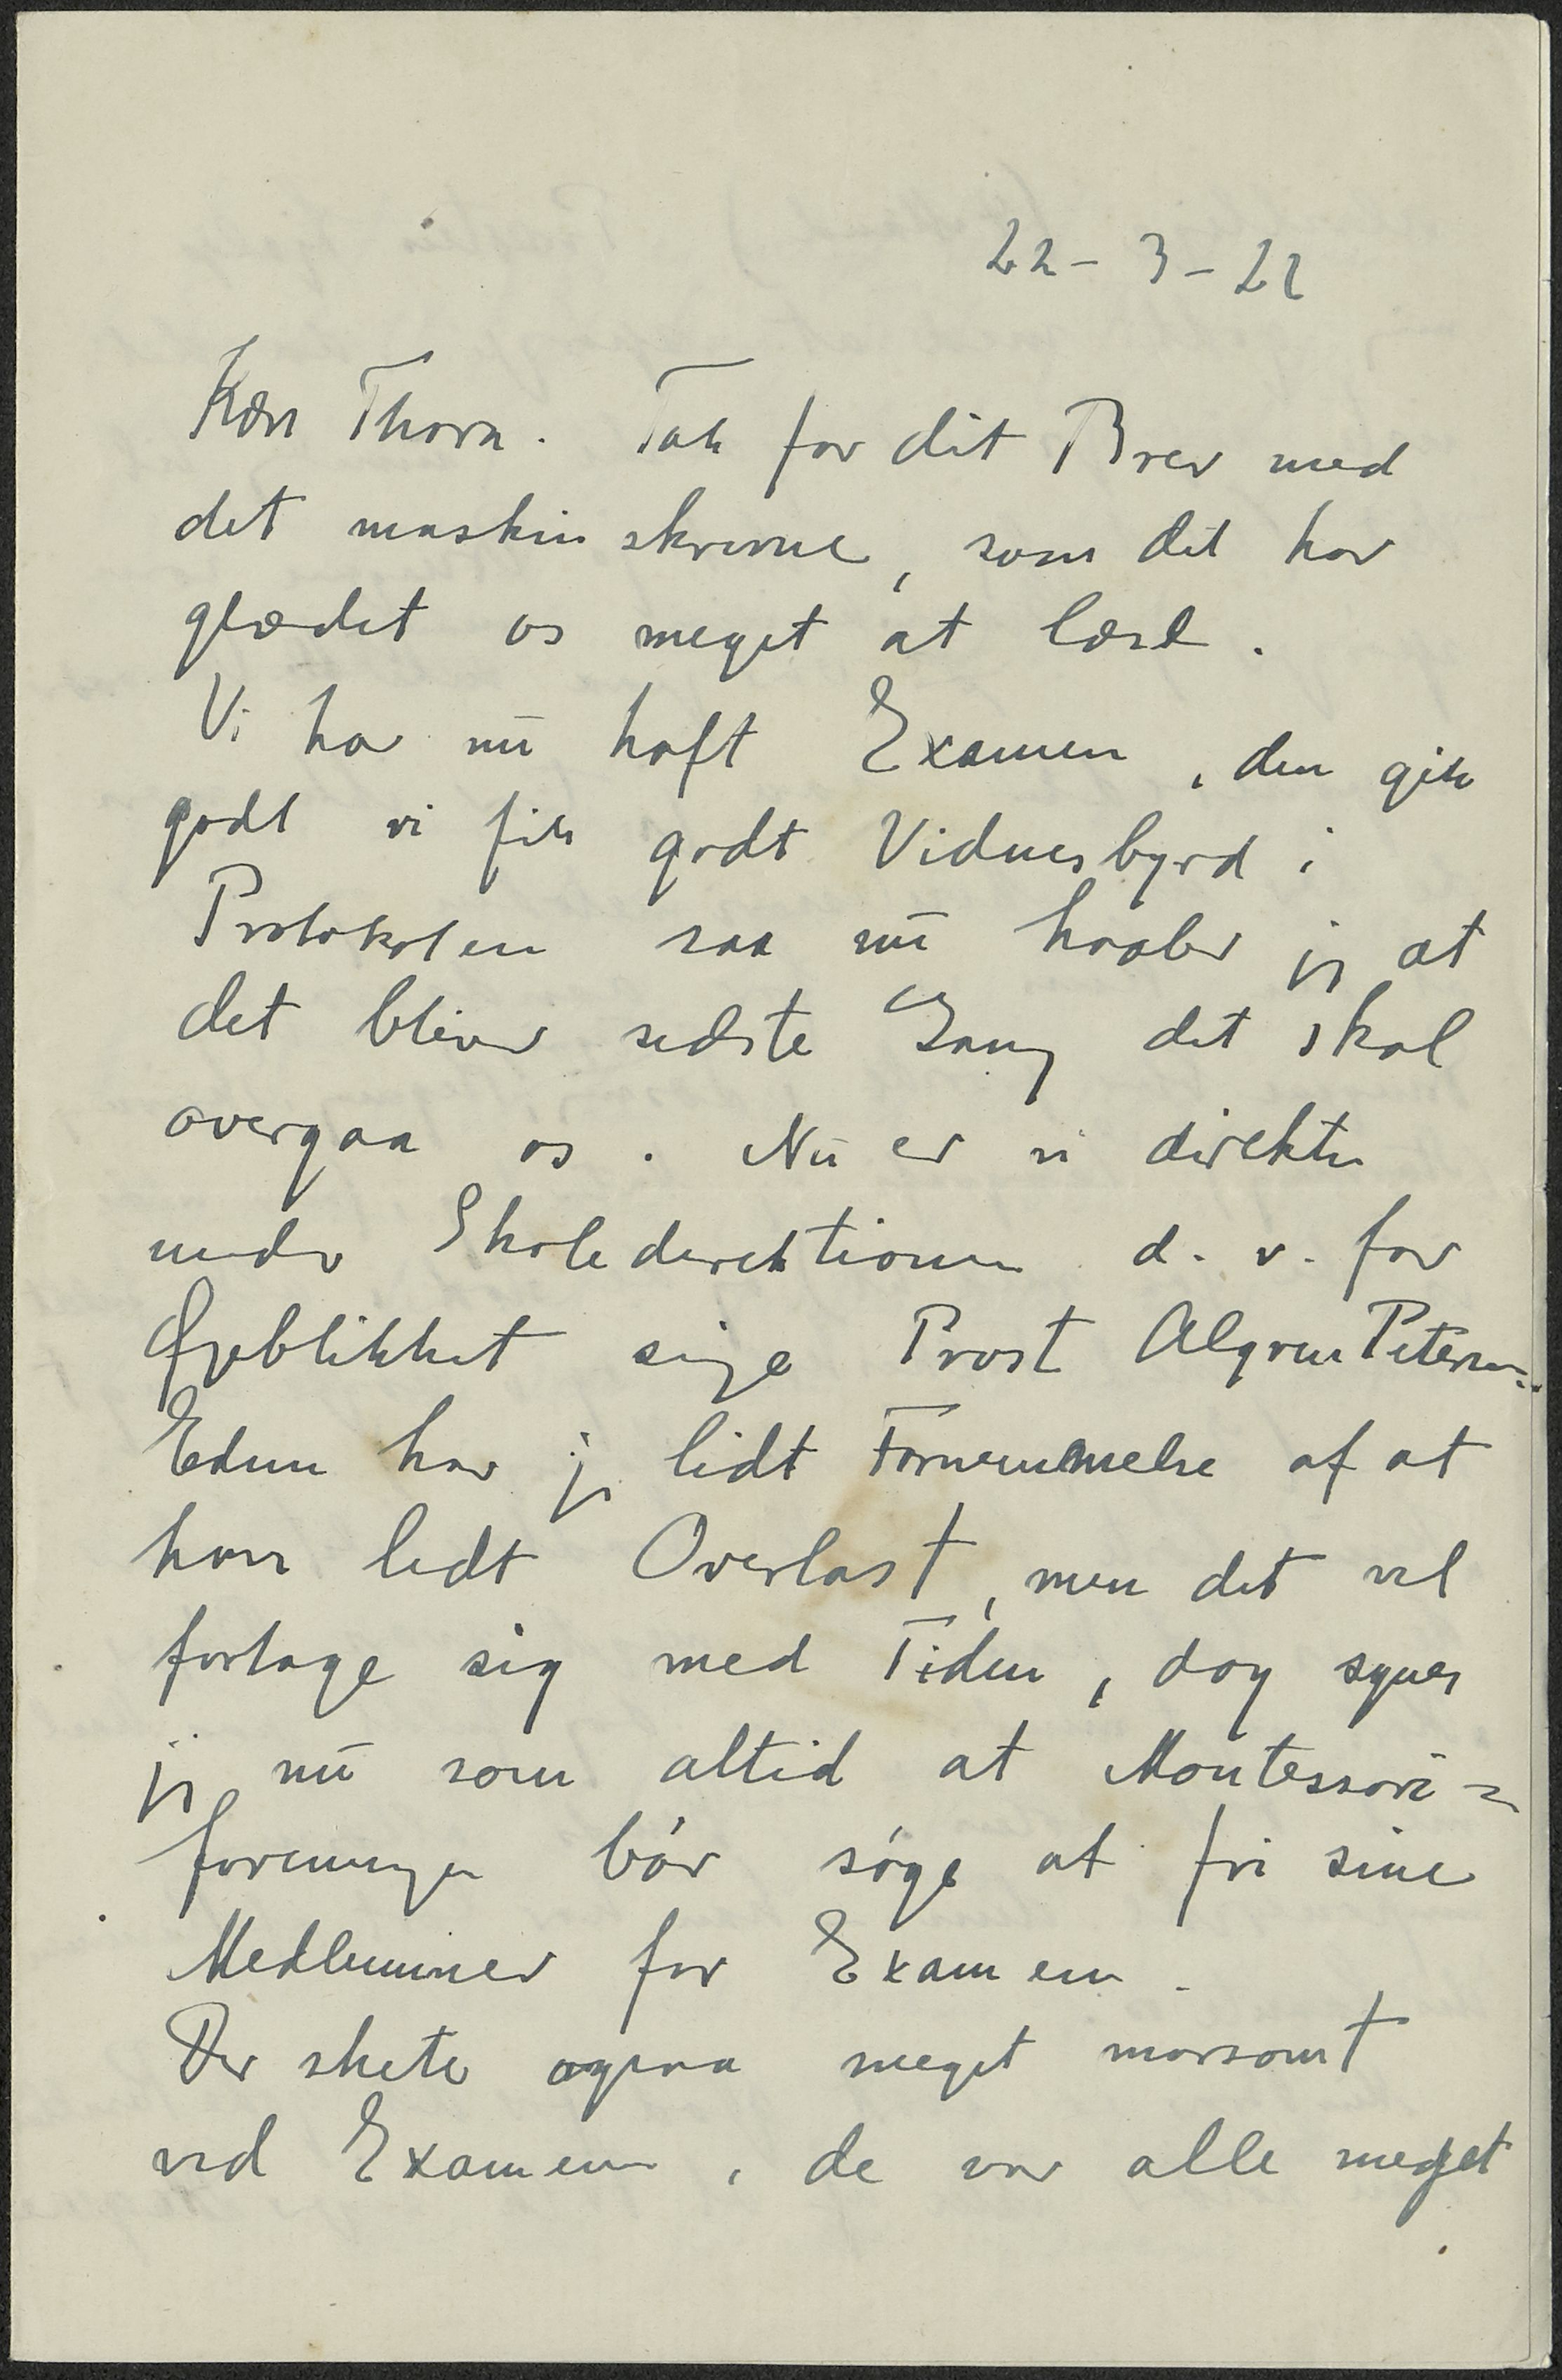 22-3-22
Kære Thora. Tak for dit Brev med
det maskinskrevne, som det har
glædet os meget at læse.
Vi har nu haft Examen, den gik
godt vi fik godt Vidnesbyrd i
Protokolen saa nu haaber jeg at
det bliver sidste Gang det skal
overgaa os. Nu er vi direkte
under Skoledirektionen d. v. for
Øjeblikket sige Provst Algren Petersen.
Edna har jeg lidt Fornemmelse af at
have ledt Overlast, men det vil
fortage sig med Tiden, dog synes
jeg nu som altid at Montessori=
foreningen bör söge at fri sine
Medlemmer for Examen.
Der skete ogsaa meget morsomt
ved Examen, de var alle meget